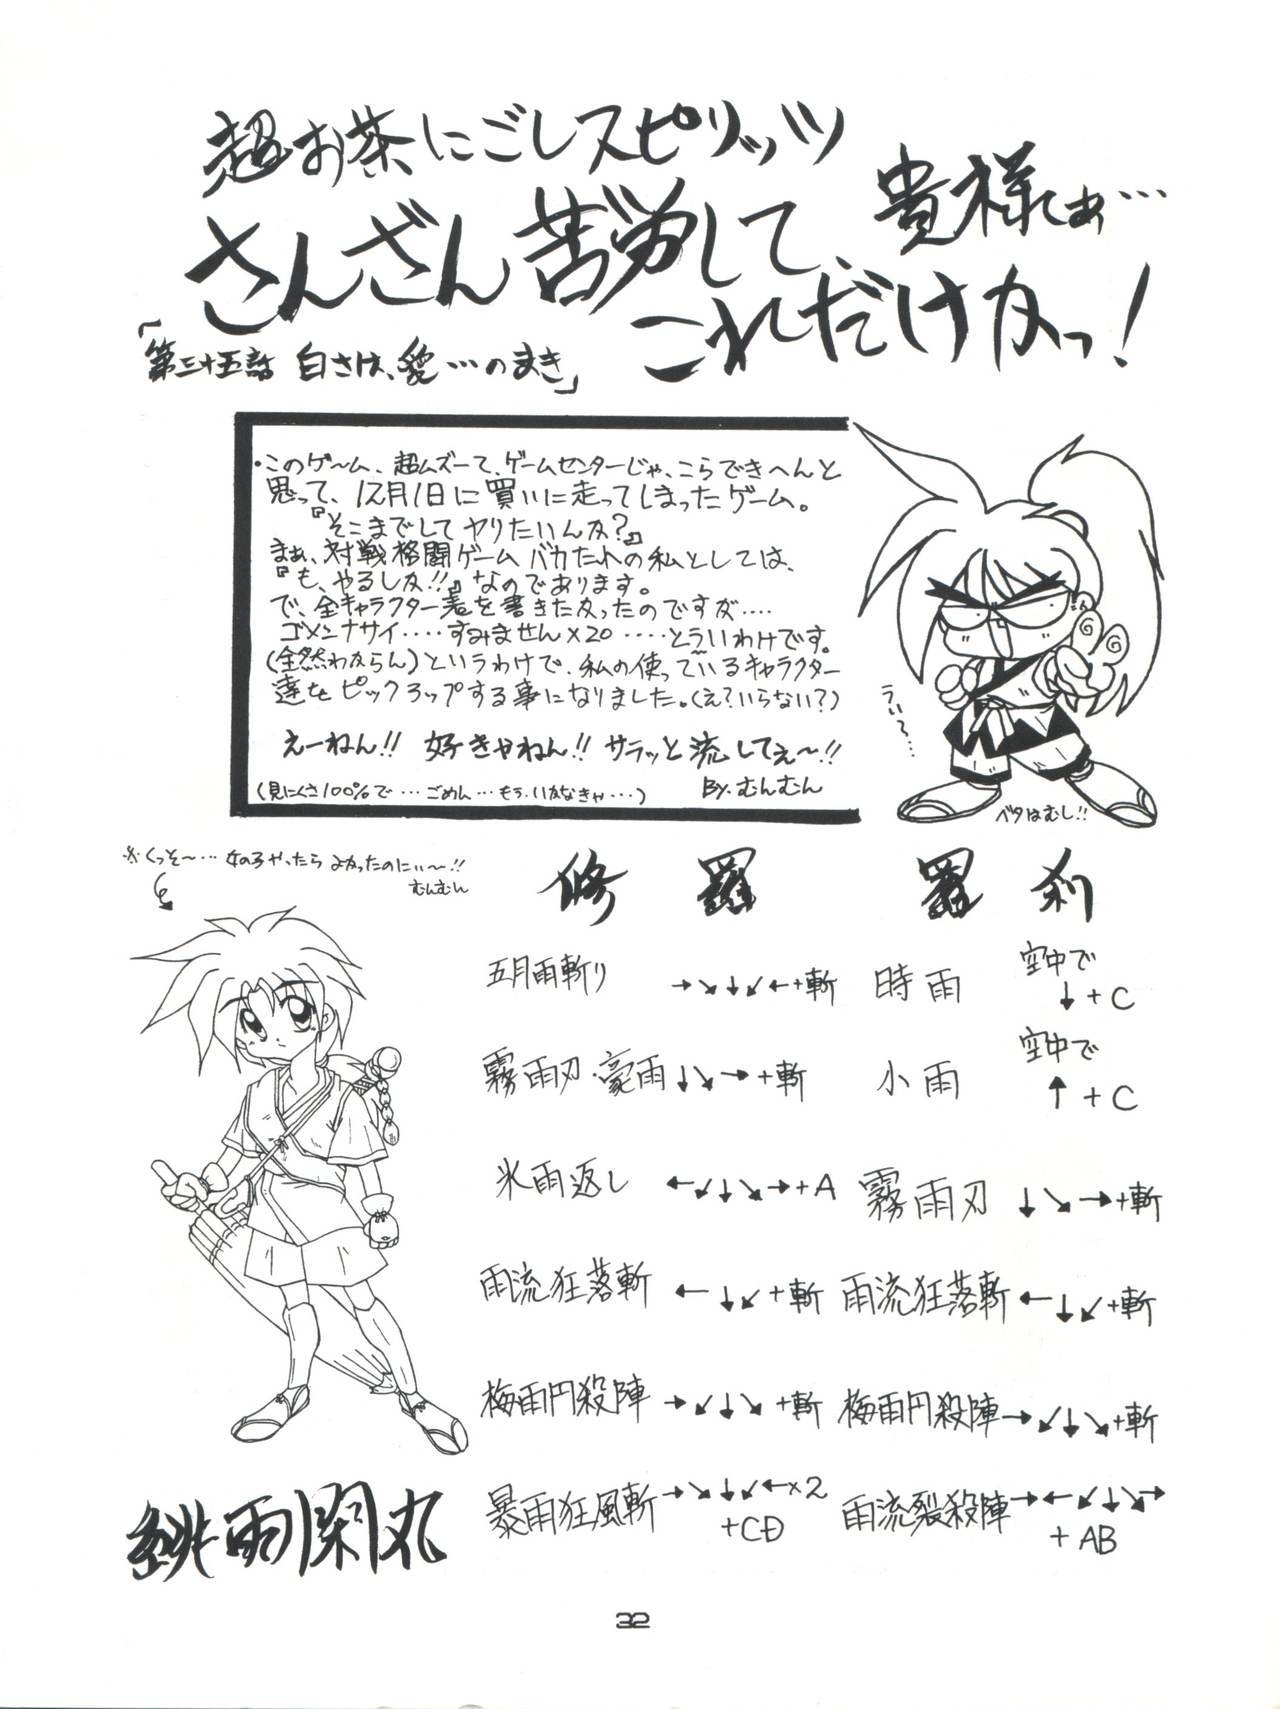 超お茶にごしスピリッツ
貴様しぁ…
さんざん苦労して、
これだけかっ!
「第三十五話 白さは、愛…のまき」
・このゲーム、超ムズーて、ゲームセンターじゃ、こらできへんと
思って、12月1日に買いに走ってしまったゲーム。
『そこまでしてヤりたいんか?』
まぁ、対戦格闘ゲームバカたれの私としては、
『も、やるしか!!』なのであります。
で、全キャラクター表を書きたかったのですが‥‥
ゴメンナサイ‥‥すみません×20‥‥とういわけです。
(全然わからん)というわけで、私の使っているキャラクター
達をピックアップする事になりました。(え?いらない?)
えーねん!! 好きやねん!! サラッと流してぇ〜!!
(見にくさ100%で…ごめん…もういかなきゃ…)
By.むんむん
うい〜…
ベタはむし!!
※くっそ〜… 女の子やったら よかったのにぃ〜!!
むんむん
修羅 羅刹
五月雨斬り →↘↓↙←+斬 時雨 空中で ↓+C
霧雨刃・豪雨 ↓↘→+斬 小雨 空中で ↑+C
氷雨返し ←↙↓↘→+A 霧雨刃 ↓↘→+斬
雨流狂落斬 ←↓↙+斬 雨流狂落斬 ←↓↙+斬
梅雨円殺陣 →↙↓↘+斬 梅雨円殺陣 →↙↓↘+斬
暴雨狂風斬 →↘↓↙←×2 +CD 雨流裂殺陣 →←↙↓↘→ +AB
緋雨閑丸
32